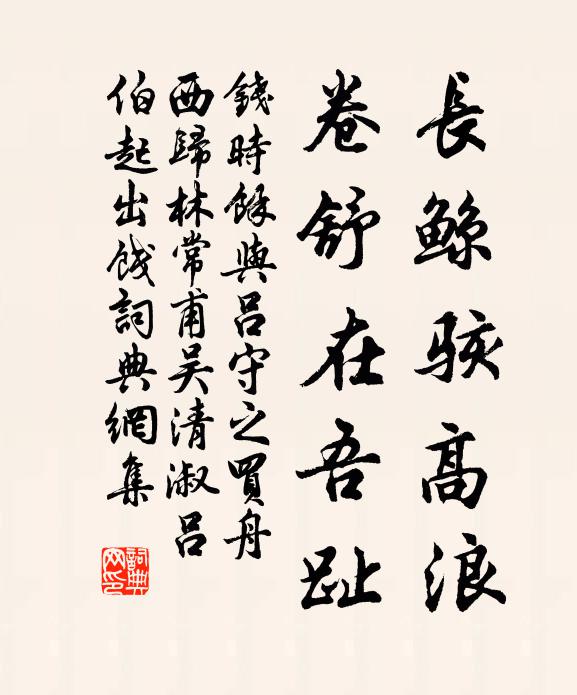 長鯨駭高浪
卷舒在吾趾
錢時餘與呂守之買舟
西歸林常甫吴清淑呂
伯起出餞詞典網集
詞典网印